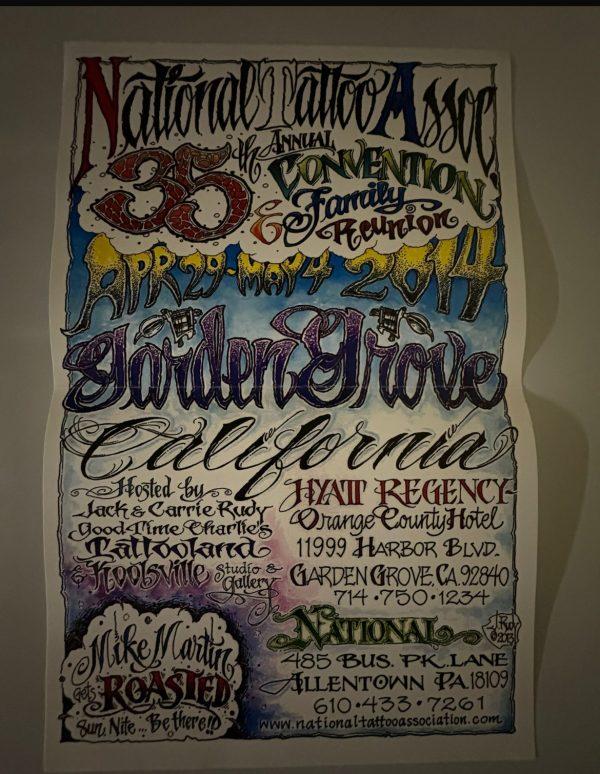 National Tattoo Assoc.
35th Annual Convention
& Family Reunion
Apr 29-May 4 2014
Garden Grove
California
Hosted by
Jack & Carrie Rudy
Good Time Charlie's
Tattooland
& Koolsville Studio & Gallery
Hyatt Regency-
Orange County Hotel
11999 Harbor Blvd.
Garden Grove, Ca. 92840
714•750•1234
Mike Martin
Gets Roasted
Sun. Nite... Be there!!
National
485 Bus. Pk. Lane
Allentown Pa 18109
610•433•7261
www.nationaltattooassociation.com
©2013